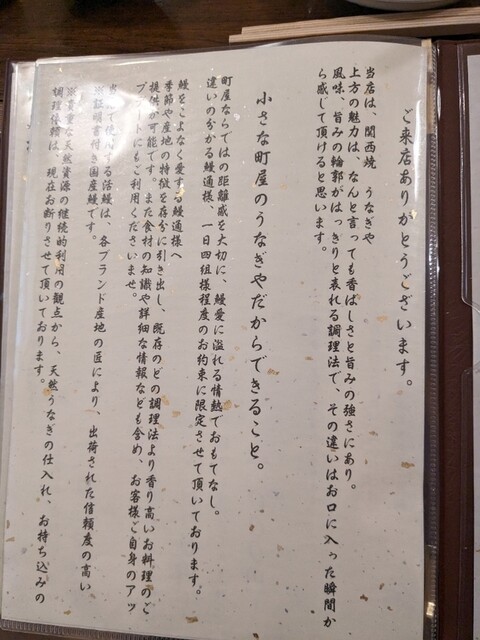 ご来店ありがとうございます。
当店は、関西焼 うなぎや
上方の魅力は、なんと言っても香ばしさと旨みの強さにあり。
風味、旨みの輪郭がはっきりと表れる調理法で、その違いはお口に入った瞬間か
ら感じて頂けると思います。
小さな町屋のうなぎやだからできること。
町屋ならではの距離感を大切に、鰻愛に溢れる情熱でおもてなし。
違いの分かる鰻通様、一日四組様程度のお約束に限定させて頂いております。
鰻をこよなく愛する鰻通様へ
季節や産地の特徴を存分に引き出し、既存のどの調理法より香り高いお料理のご
提供が可能です。また食材の知識や詳細な情報なども含め、お客様ご自身のアッ
プデートにもご利用くださいませ。
当店で使用する活鰻は、各ブランド産地の匠により、出荷された信頼度の高い
証明書付き国産鰻です。
貴重な天然資源の継続的利用の観点から、天然うなぎの仕入れ、お持ち込みの
調理依頼は、現在お断りさせて頂いております。